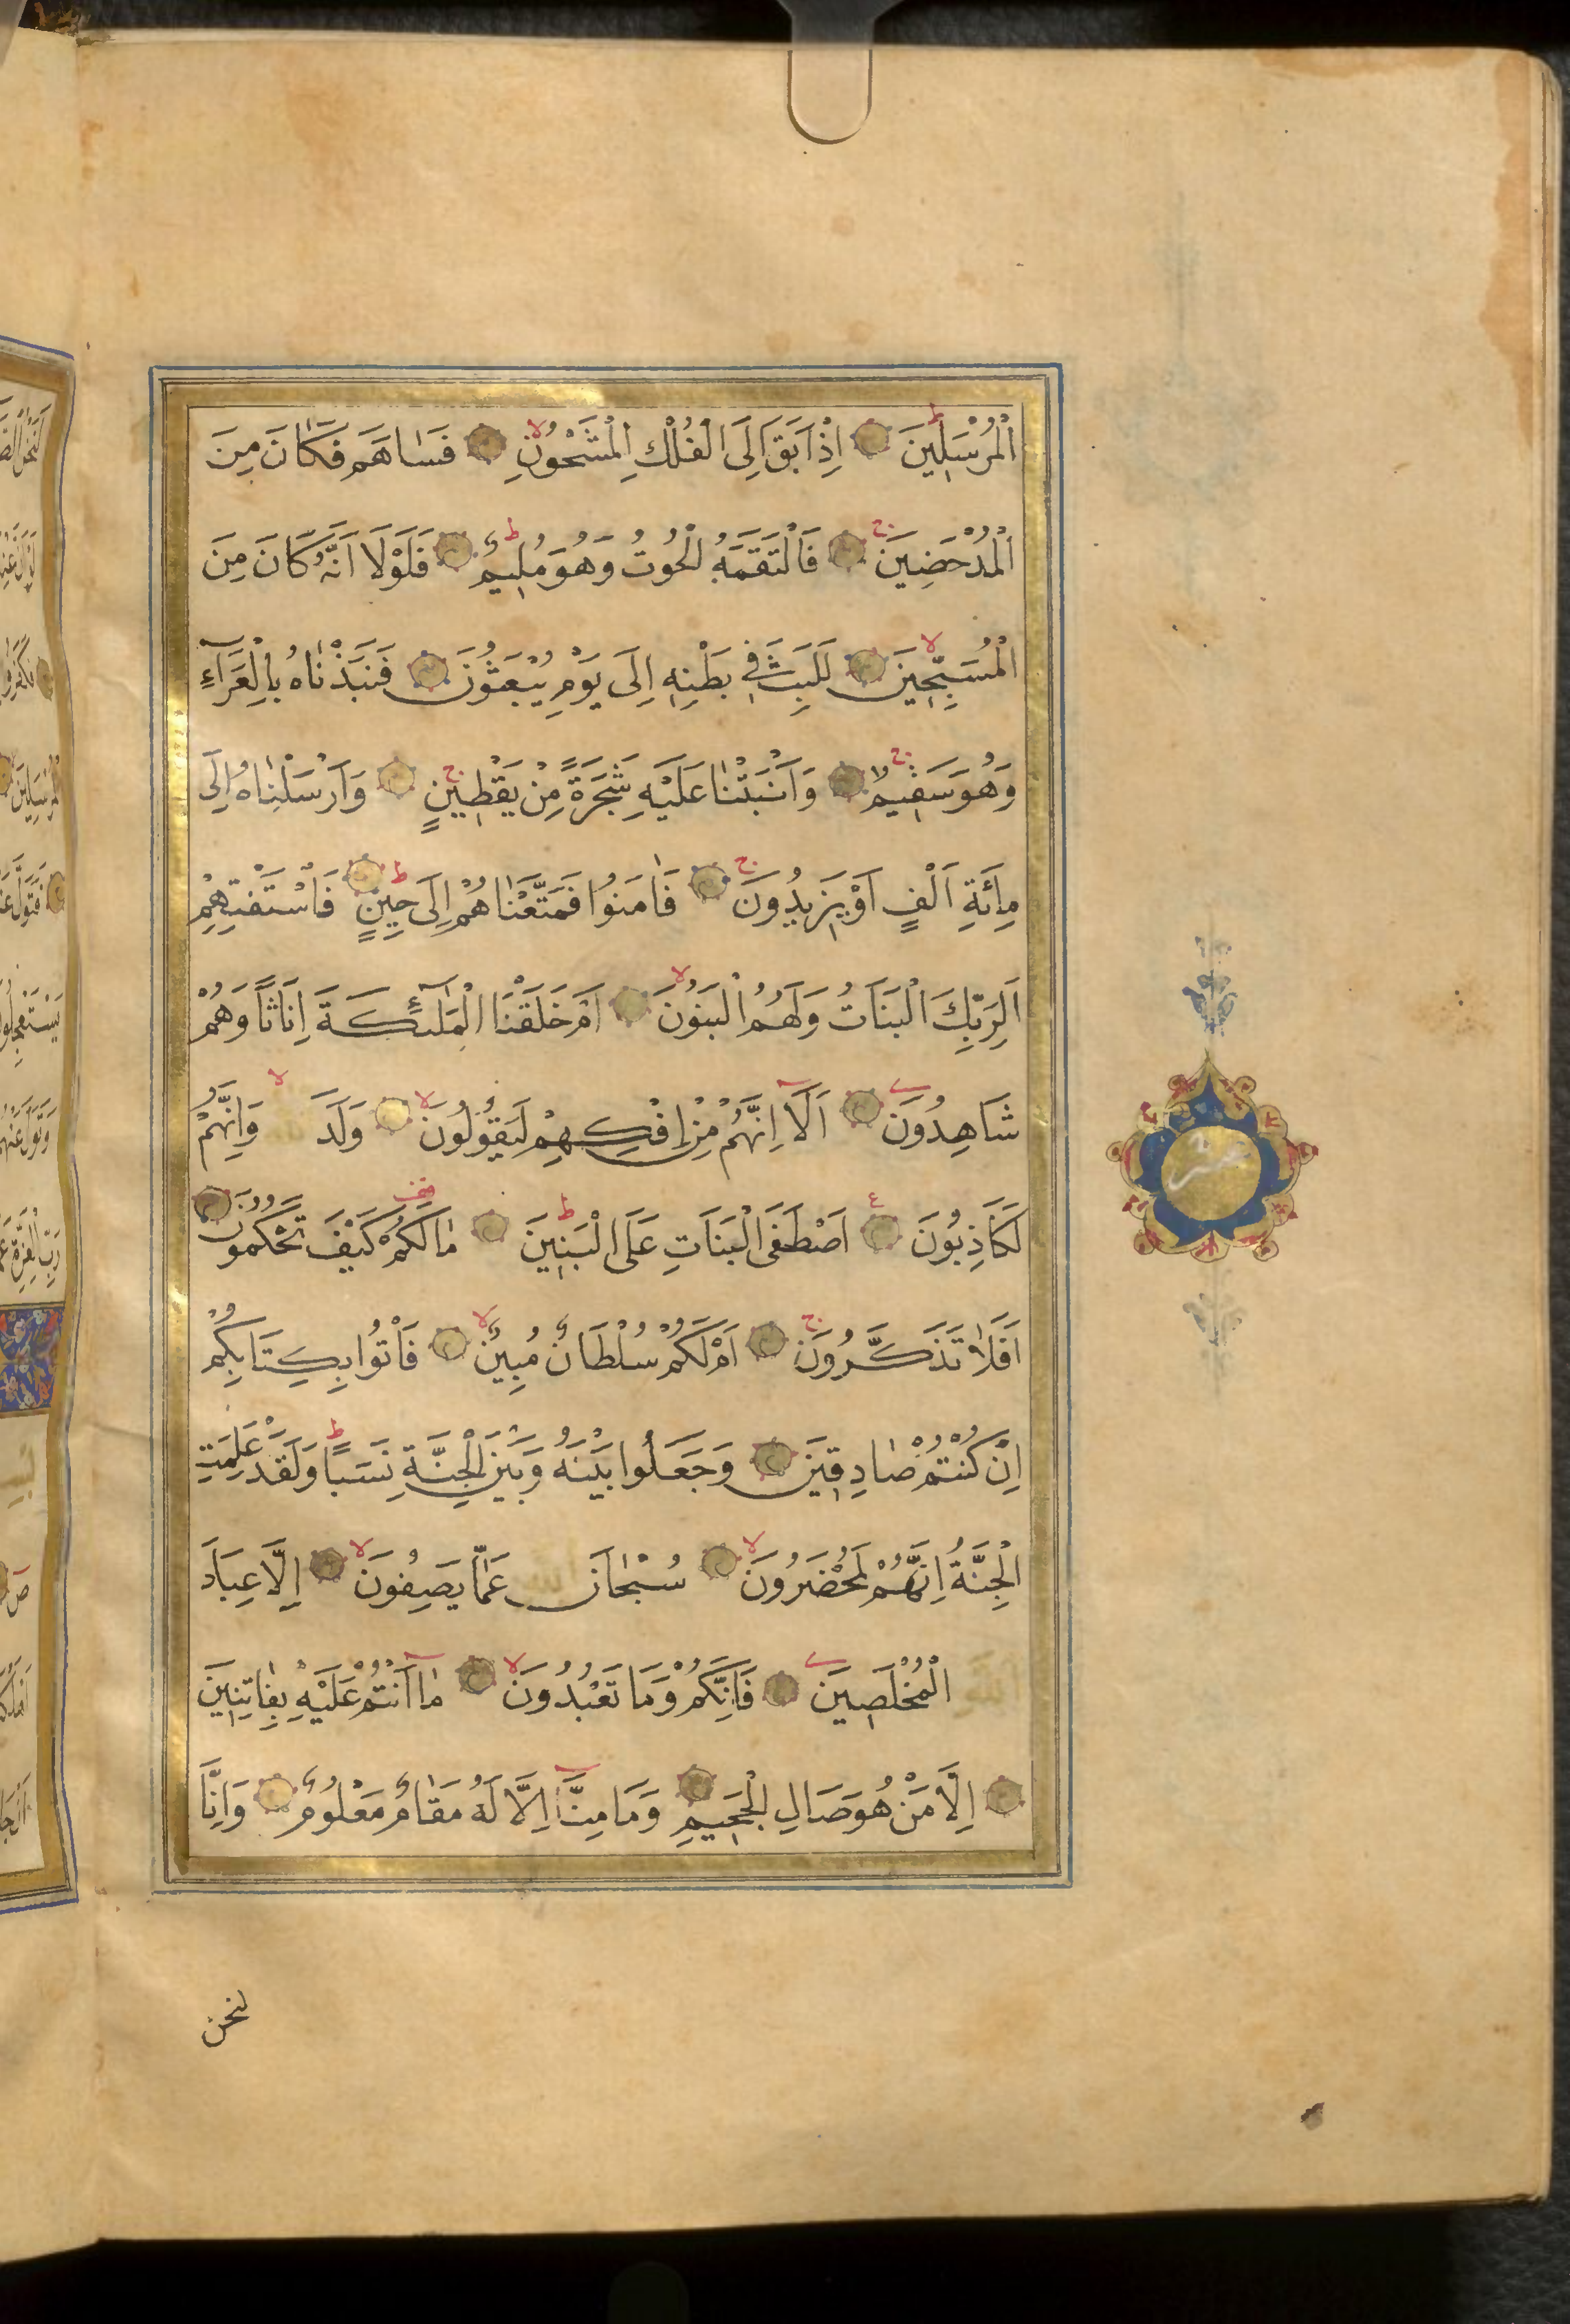 اَلْمُرْسَلِينَ اِذْ اَبَقَ اِلَى الْفُلْكِ الْمَشْحُونِ فَسَاهَمَ فَكَانَ مِنَ
الْمُدْحَضِينَ فَالْتَقَمَهُ الْحُوتُ وَهُوَ مُلِيمٌ فَلَوْلَا اَنَّهُ كَانَ مِنَ
الْمُسَبِّحِينَ لَلَبِثَ فِي بَطْنِهِ اِلَى يَوْمِ يُبْعَثُونَ فَنَبَذْنَاهُ بِالْعَرَآءِ
وَهُوَ سَقِيمٌ وَاَنْبَتْنَا عَلَيْهِ شَجَرَةً مِنْ يَقْطِينٍ وَاَرْسَلْنَاهُ اِلَى
مِائَةِ اَلْفٍ اَوْ يَزِيدُونَ فَاٰمَنُوا فَمَتَّعْنَاهُمْ اِلَى حِينٍ فَاسْتَفْتِهِمْ
اَلِرَبِّكَ الْبَنَاتُ وَلَهُمُ الْبَنُونَ اَمْ خَلَقْنَا الْمَلٰٓئِكَةَ اِنَاثًا وَهُمْ
شَاهِدُونَ اَلَآ اِنَّهُمْ مِنْ اِفْكِهِمْ لَيَقُولُونَ وَلَدَ الله وَاِنَّهُمْ
لَكَاذِبُونَ اَصْطَفَى الْبَنَاتِ عَلَى الْبَنِينَ مَا لَكُمْ كَيْفَ تَحْكُمُونَ
اَفَلَا تَذَكَّرُونَ اَمْ لَكُمْ سُلْطَانٌ مُبِينٌ فَاْتُوا بِكِتَابِكُمْ
اِنْ كُنْتُمْ صَادِقِينَ وَجَعَلُوا بَيْنَهُ وَبَيْنَ الْجِنَّةِ نَسَبًا وَلَقَدْ عَلِمَتِ
الْجِنَّةُ اِنَّهُمْ لَمُحْضَرُونَ سُبْحَانَ الله عَمَّا يَصِفُونَ اِلَّا عِبَادَ
الله الْمُخْلَصِينَ فَاِنَّكُمْ وَمَا تَعْبُدُونَ مَآ اَنْتُمْ عَلَيْهِ بِفَاتِنِينَ
اِلَّا مَنْ هُوَ صَالِ الْجَحِيمِ وَمَا مِنَّآ اِلَّا لَهُ مَقَامٌ مَعْلُومٌ وَاِنَّا
لنحن
عشر